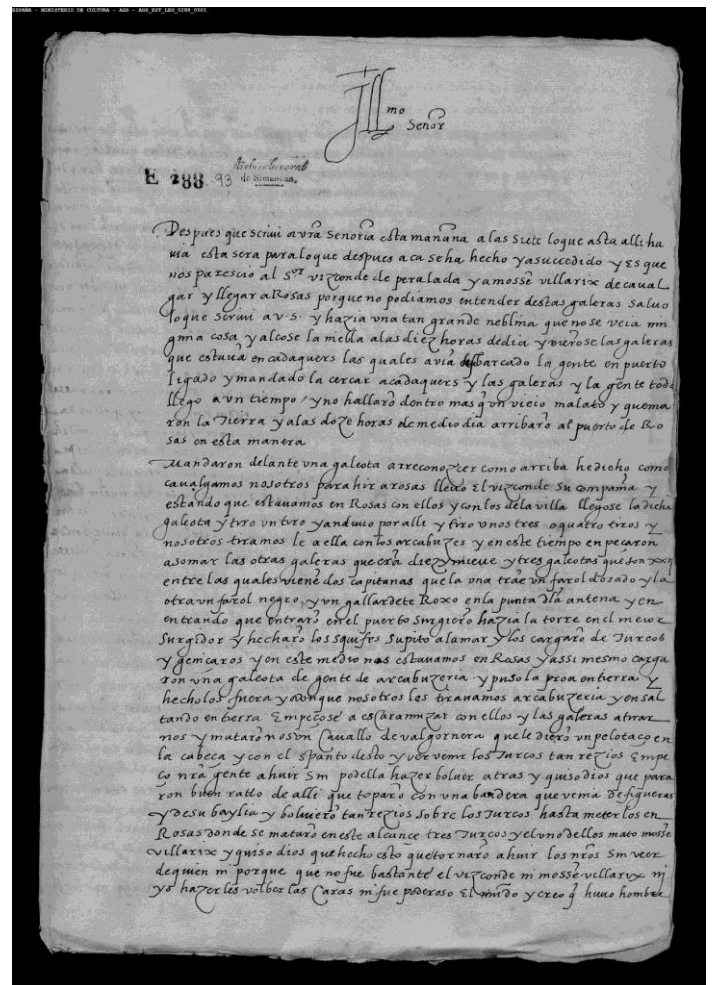 ESPAÑA - MINISTERIO DE CULTURA - AGS - AGS_EST_LEG_0288_0001
Illmo
Señor
E 288 93
Archivo General
de Simancas.
Despues que scriui a vra Señoria esta mañana a las siete lo que asta alli ha
uia esta sera para lo que despues aca se ha hecho y a succedido y es que
nos parescio al Sor vizconde de peralada y a mosse villarix de caual
gar y llegar a Rosas porque no podiamos entender destas galeras saluo
lo que scriui a v.s. y hazia vna tan grande neblina que no se veia nin
guna cosa y alcose la niebla a las diez horas de dia y vierose las galeras
que estaua en cadaquers las quales auia desbarcado la gente en puerto
ligado y mandado la cercar a cadaquers y las galeras y la gente todo
llego a vn tiempo / y no hallaro dentro mas q vn vieio malato y quema
ron la tierra y a las doze horas de medio dia arribaro al puerto de Ro
sas en esta manera
Mandaron delante vna galeota a rreconozer como arriba he dicho como
caualgamos nosotros para hir a rosas lleuo el vizconde su compañia y
estando que estauamos en Rosas con ellos y con los de la villa llegose la dicha
galeota y tiro vn tiro y anduuo por alli y tiro vnos tres o quatro tiros y
nosotros tiramos le a ella con los arcabuzes y en este tiempo enpecaron
a somar las otras galeras que era diez y nueue y tres galeotas que son xxij
entre las quales viene dos capitanas que la vna trae vn farol dorado y la
otra vn farol negro, y vn gallardete Roxo en la punta dla antena y en
entrando que entraro en el puerto surgiero hazia la torre en el meior
surgidor y hecharo los squifes supito a la mar y los cargaro de Turcos
y geniçaros y en este medio nos estauamos en Rosas y assi mesmo carga
ron vna galeota de gente de arcabuzeria y puso la proa en tierra y
hecholos fuera y aunque nosotros les tirauamos arcabuzeria y en sal
tando en tierra empeçose a escaramuzar con ellos y las galeras a tirar
nos y mataronos vn cauallo de valgornera que le diero vn pelotaço en
la cabeça y con el spanto desto y ver venir los Turcos tan rezios empe
ço nra gente a huir sin podella hazer boluer atras y quiso dios que para
ron buen ratto de alli que toparo con vna bandera que venia de figueras
y de su baylia y boluiero tan rezios sobre los Turcos hasta meter los en
Rosas donde se mataro en este alcance tres Turcos y el vno dellos mato mosse
villarix y quiso dios que hecho esto que tornaro a huir los nros sin veer
de quien ni porque que no fue bastante el vizconde ni mosse villarix ni
yo hazer les volber las caras ni fue poderoso el mudo y creo q huuo hombre